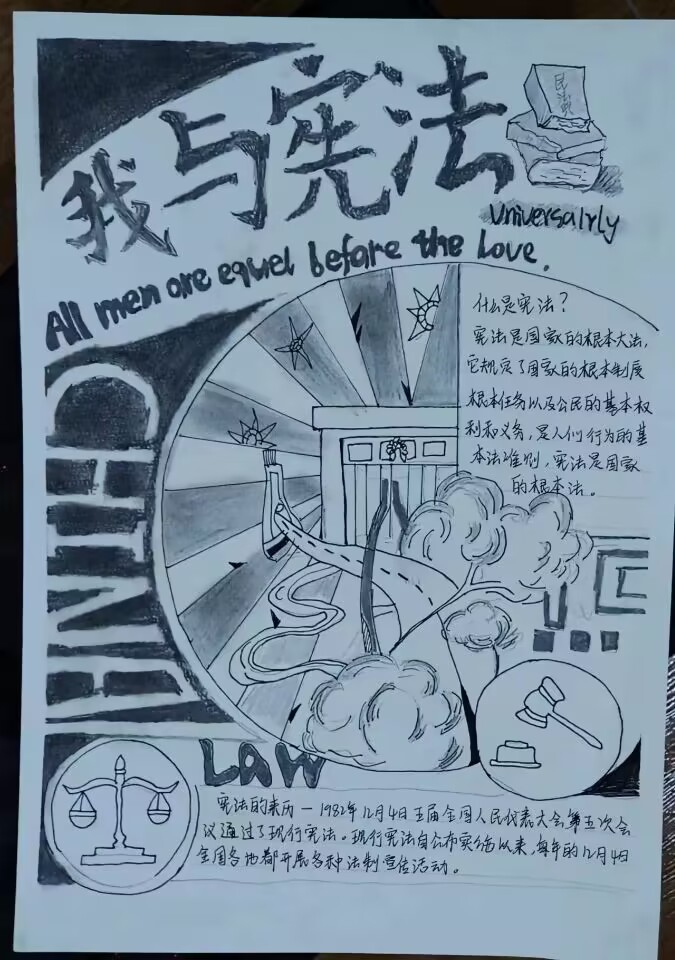 我与宪法
民法典
Universalrly
All men are equel before the Love.
什么是宪法？
宪法是国家的根本大法，
它规定了国家的根本制度
根本任务以及公民的基本权
利和义务，是人们行为的基
本法准则，宪法是国家
的根本法。
CHINA
LAW
宪法的来历—1982年12月4日五届全国人民代表大会第五次会
议通过了现行宪法。现行宪法自公布实施以来，每年的12月4日
全国各地都开展各种法制宣传活动。